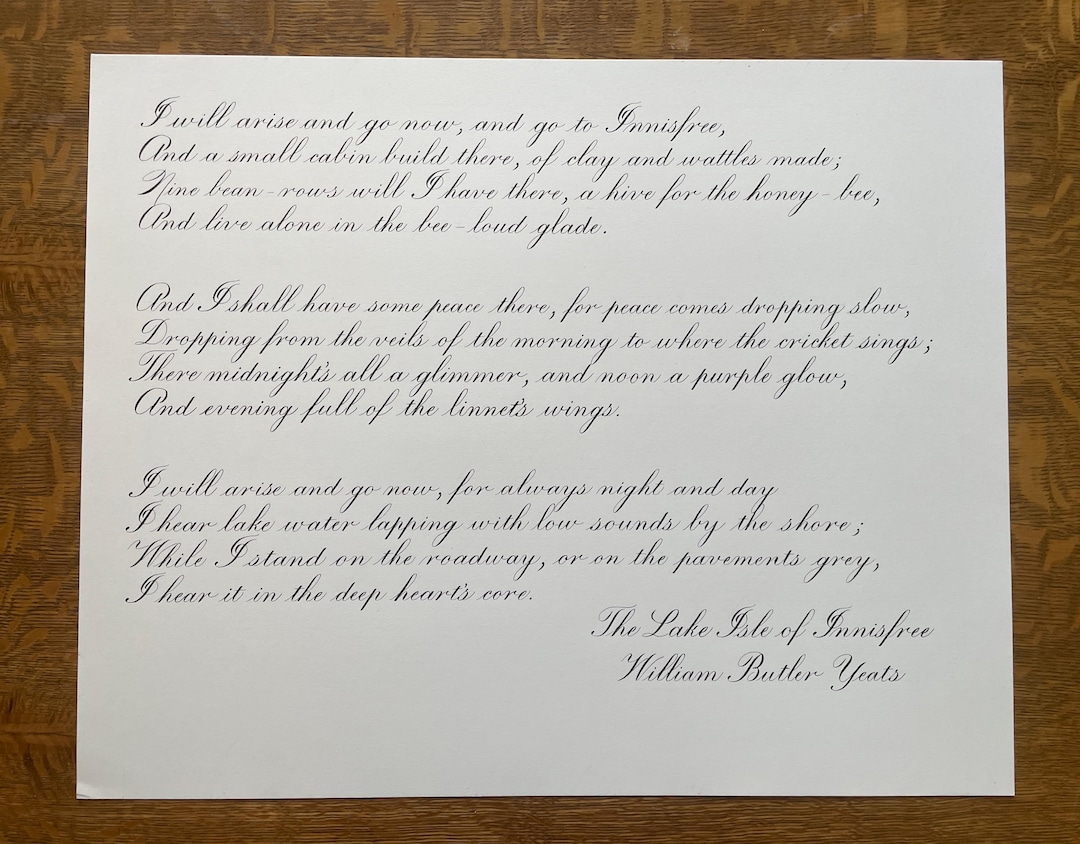 I will arise and go now, and go to Innisfree,
And a small cabin build there, of clay and wattles made;
Nine bean-rows will I have there, a hive for the honey-bee,
And live alone in the bee-loud glade.
And I shall have some peace there, for peace comes dropping slow,
Dropping from the veils of the morning to where the cricket sings;
There midnight's all a glimmer, and noon a purple glow,
And evening full of the linnet's wings.
I will arise and go now, for always night and day
I hear lake water lapping with low sounds by the shore;
While I stand on the roadway, or on the pavements grey,
I hear it in the deep heart's core.
The Lake Isle of Innisfree
William Butler Yeats